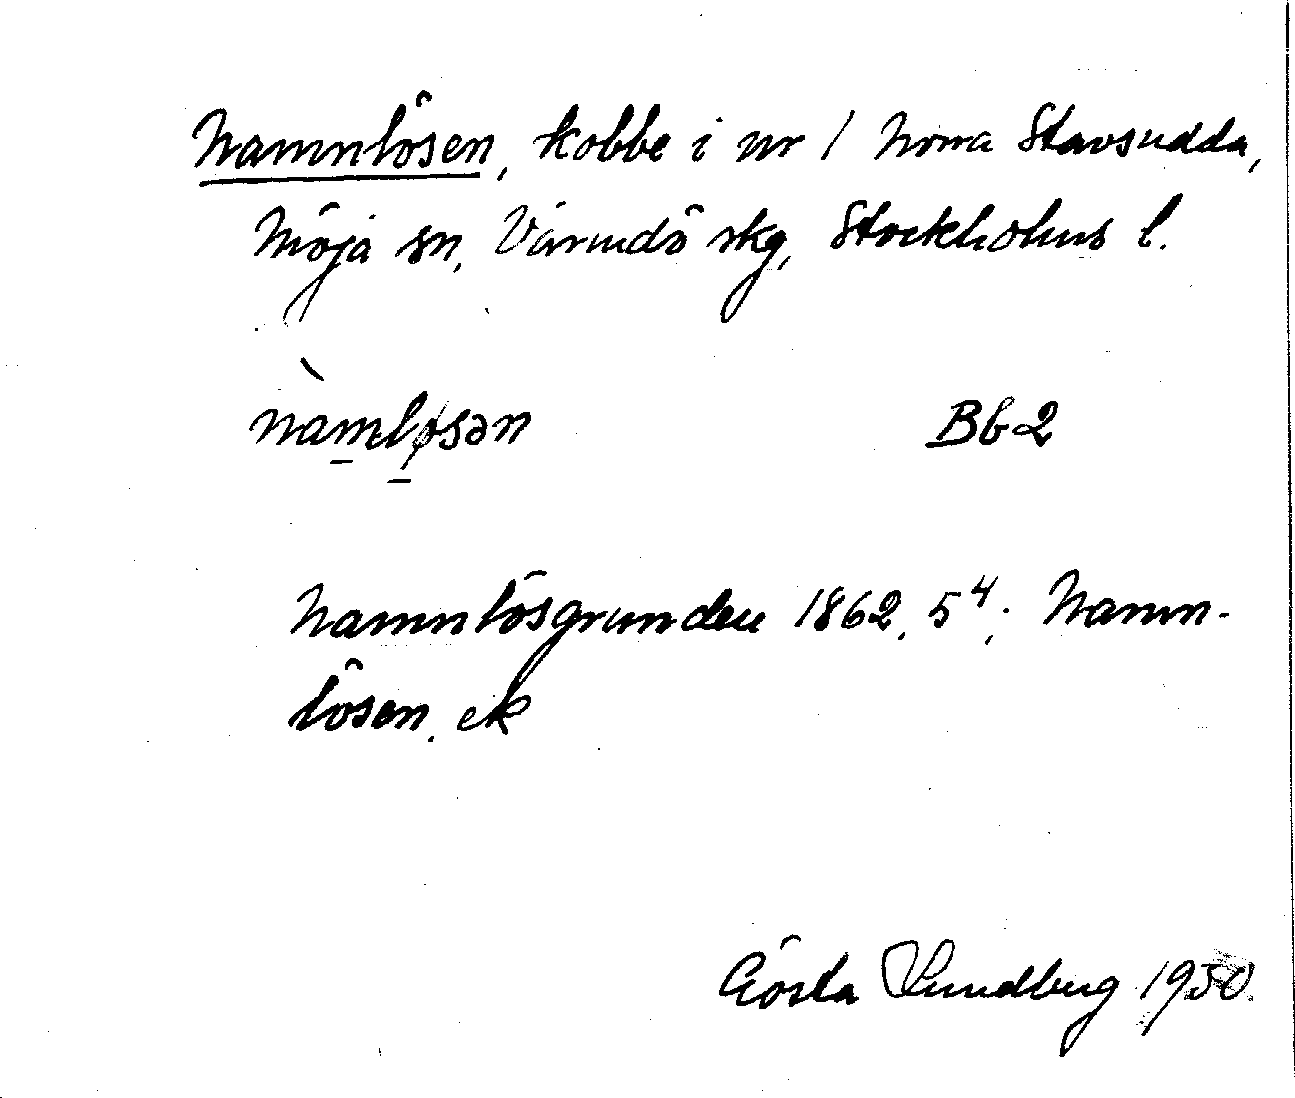 Namnlösen, kobbe i nr 1 Norra Stavsudda,
Möja sn, Värmdö skg, Stockholms l.
nàmløsən Bb2
Namnlösgrunden 1862. 5⁴; Namn-
lösen. ek
Gösta Lundberg 1950.